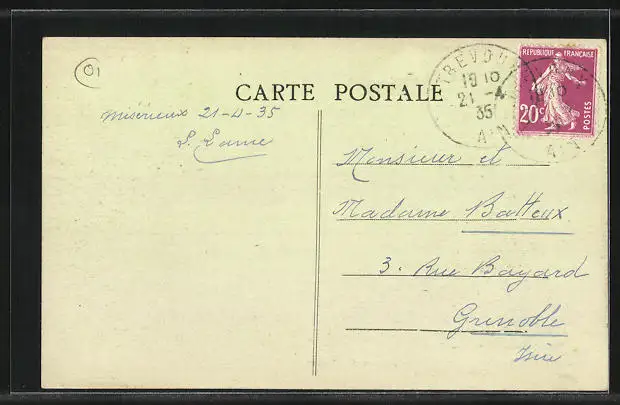 01
CARTE POSTALE
Misérieux 21-4-35
Monsieur et
Madame Batteux
3. Rue Bayard
Grenoble
Isère
TREVOUX
18 10
21 -4
35
AIN
REPUBLIQUE FRANÇAISE
20c
POSTES